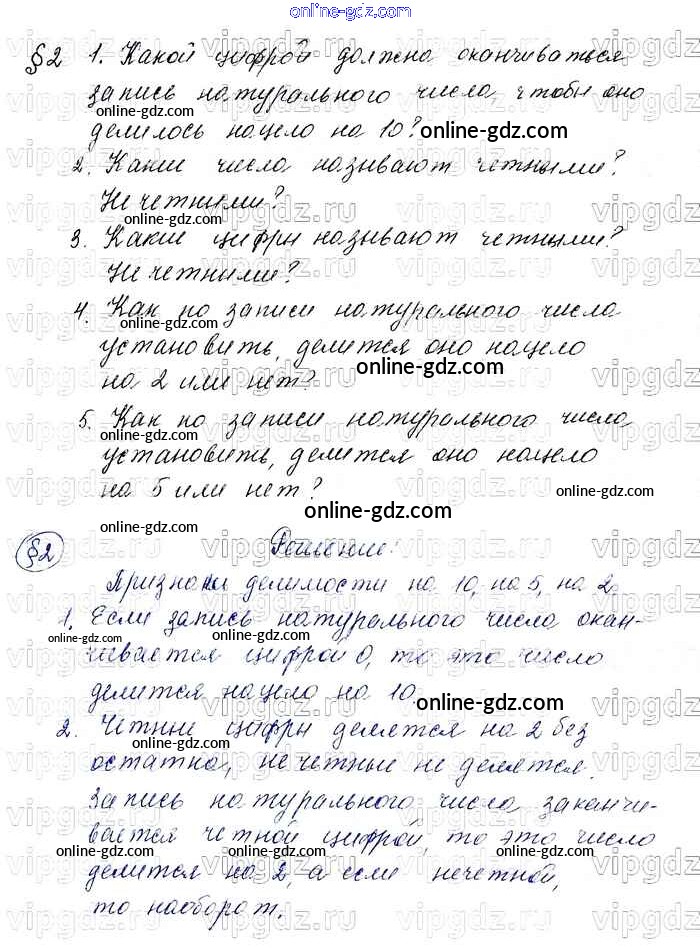 online-gdz.com
§2 1. Какой цифрой должна оканчиваться
запись натурального числа, чтобы оно
online-gdz.com
делилось нацело на 10? online-gdz.com
2. Какие числа называют четными?
Нечетными?
online-gdz.com
3. Какие цифры называют четными?
Нечетными?
online-gdz.com
4. Как по записи натурального числа
online-gdz.com
установить, делится оно нацело
на 2 или нет? online-gdz.com
5. Как по записи натурального числа
online-gdz.com
установить, делится оно нацело
на 5 или нет?
online-gdz.com online-gdz.com
online-gdz.com
§2 Решение:
Признаки делимости на 10, на 5, на 2.
1. Если запись натурального числа окан-
online-gdz.com
чивается цифрой 0, то это число
делится нацело на 10.
online-gdz.com
2. Четные цифры делятся на 2 без
online-gdz.com
остатка, нечетные не делятся.
online-gdz.com
Запись натурального числа заканчи-
вается четной цифрой, то это число
online-gdz.com online-gdz.com
делится на 2, а если нечетной,
online-gdz.com
то наоборот.
vipgdz.ru